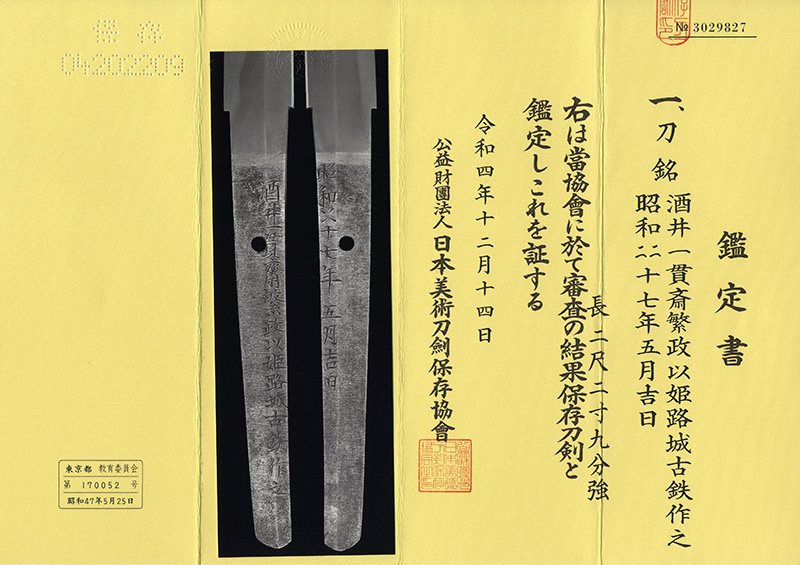 № 3029827
鑑定書
一、刀 銘 酒井一貫斎繁政以姫路城古鉄作之
昭和二二十七年五月吉日
長 二尺二寸九分強
右は當協會に於て審査の結果保存刀剣と
鑑定しこれを証する
令和四年十二月十四日
公益財團法人 日本美術刀劍保存協會
昭和二二十七年 五月吉日
酒井一貫斎繁政以姫路城古鉄作之
保存
04202209
東京都 教育委員会
第 170052 号
昭和47年5月25日